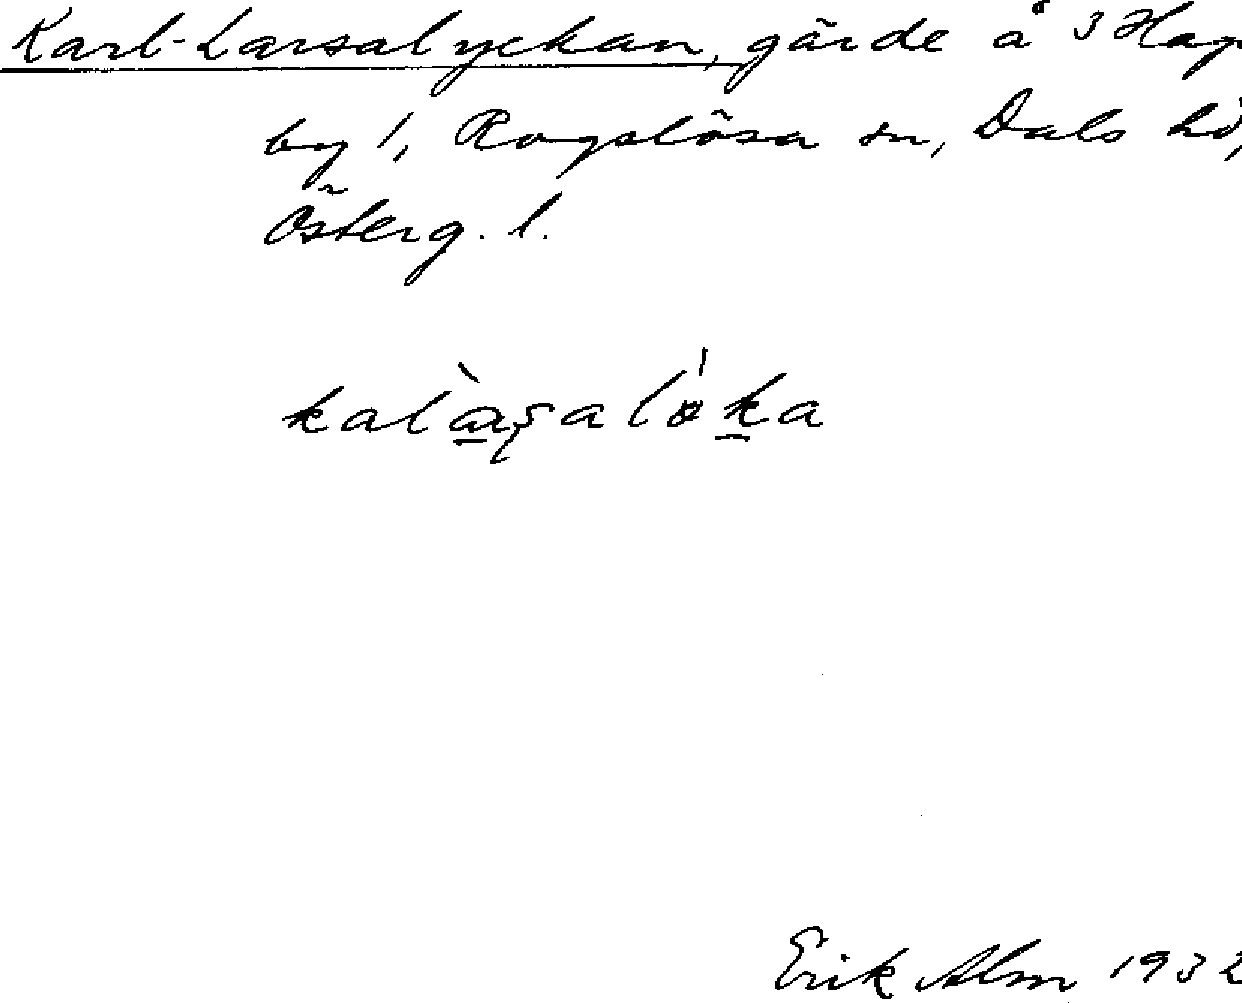 Karl-Larsalyckan, gärde å 3 Hag
by 1, Rogslösa sn, Dals hd,
Österg. l.
Erik Alm 1932